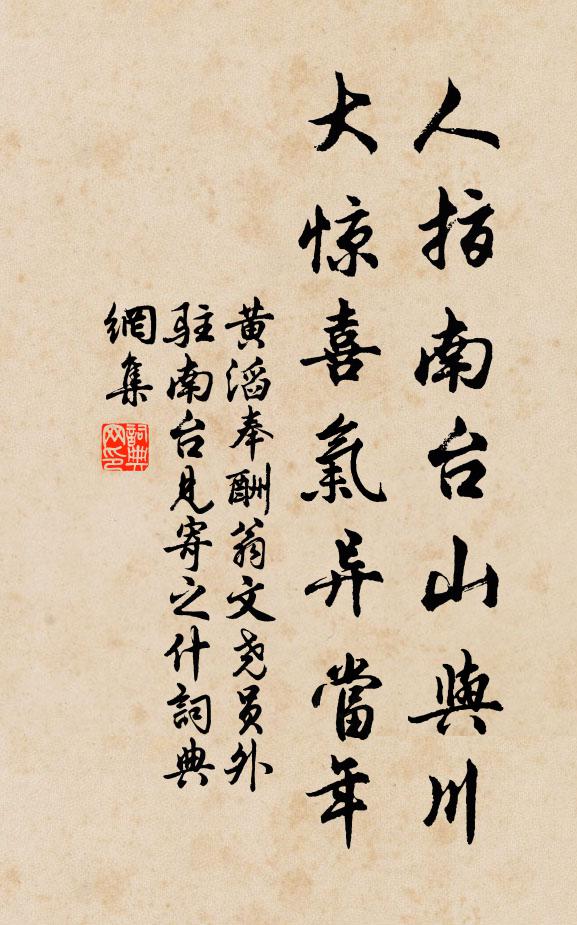 人指南台山與川
大惊喜氣异當年
黄滔奉酬翁文尧员外
駐南台見寄之什詞典
網集
詞典網印